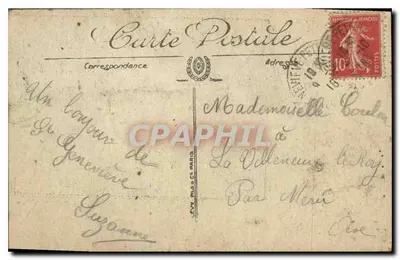 Carte Postale
Correspondance
Adresse
REPUBLIQUE FRANCAISE
10c
POSTES
Un bonjour de
Ste Geneviève
Suzanne
Mademoiselle Coulon
à
La Villeneuve le Roy
Par Méru
Oise
CPArama.com